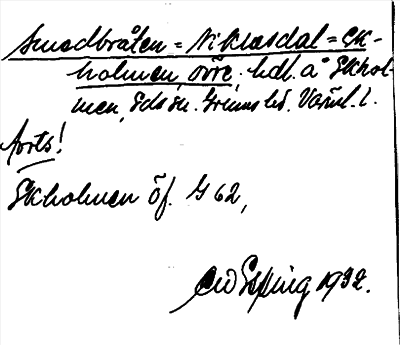 Smedbråten = Niklasdal = Ek-
holmen, övre, hdl. å Ekhol-
men, Eds sn. Grums hd. Värml. l.
forts!
Ekholmen öf. G 62,
1932.